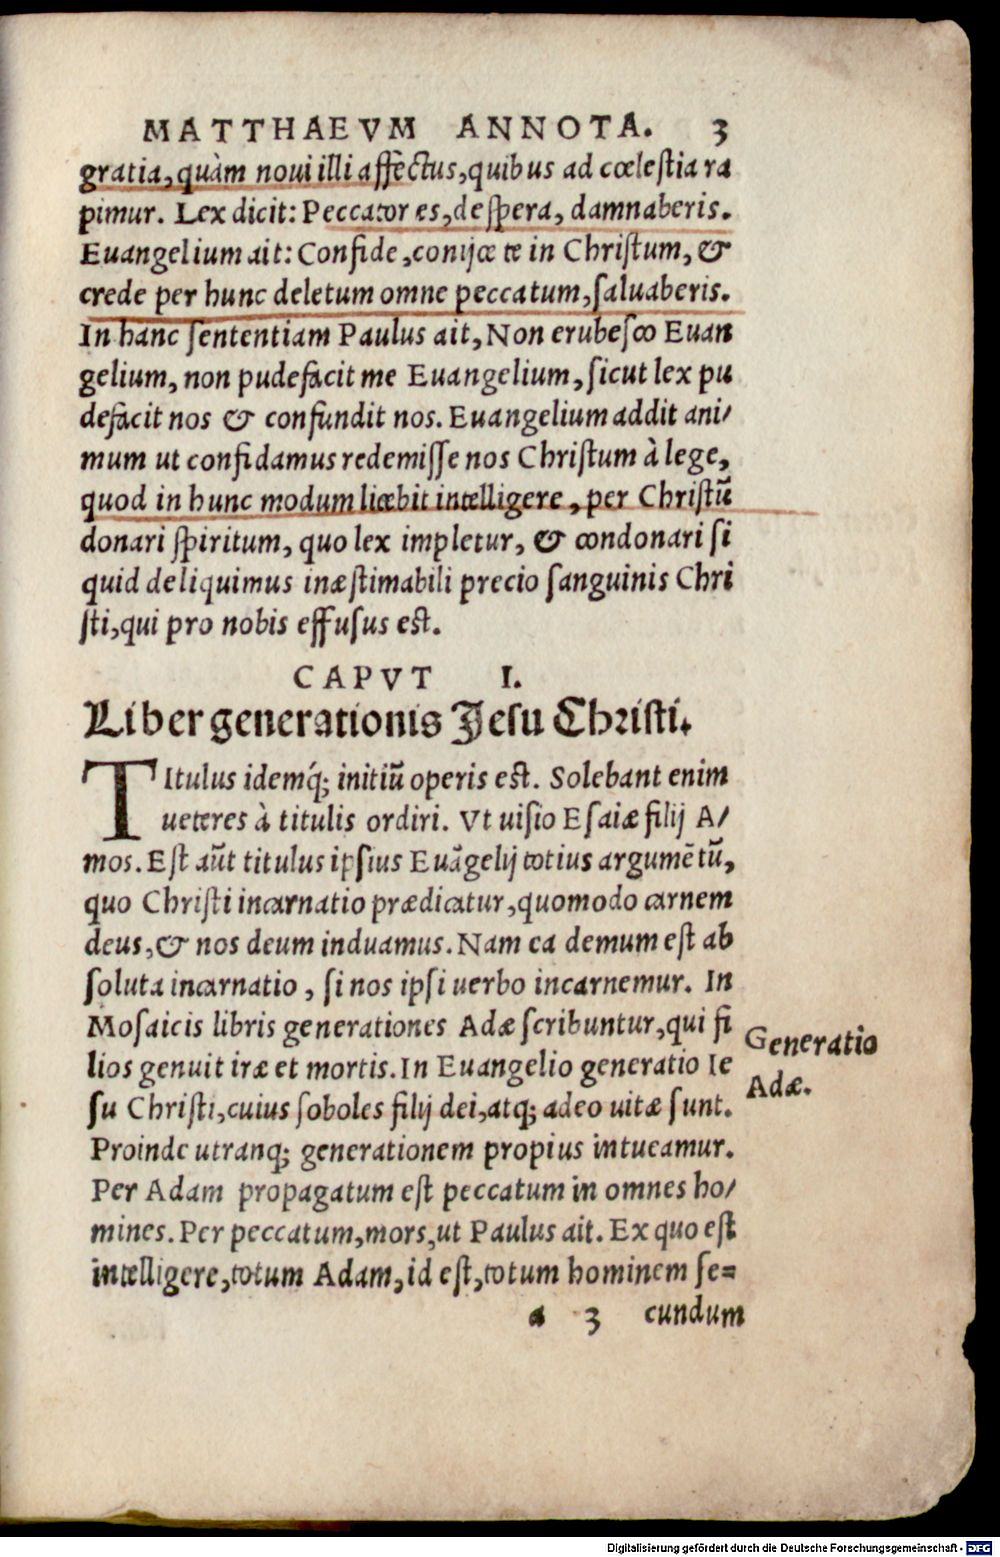 MATTHAEVM ANNOTA. 3
gratia, quàm noui illi affectus, quibus ad cœlestia ra
pimur. Lex dicit: Peccator es, despera, damnaberis.
Euangelium ait: Confide, conijce te in Christum, &
crede per hunc deletum omne peccatum, saluaberis.
In hanc sententiam Paulus ait, Non erubesco Euan
gelium, non pudefacit me Euangelium, sicut lex pu
defacit nos & confundit nos. Euangelium addit ani/
mum ut confidamus redemisse nos Christum à lege,
quod in hunc modum licebit intelligere, per Christũ
donari spiritum, quo lex impletur, & condonari si
quid deliquimus inæstimabili precio sanguinis Chri
sti, qui pro nobis effusus est.
CAPVT I.
Liber generationis Jesu Christi.
TItulus idemq́; initiũ operis est. Solebant enim
ueteres à titulis ordiri. Vt uisio Esaiæ filij A/
mos. Est aũt titulus ipsius Euãgelij totius argumẽtũ,
quo Christi incarnatio prædicatur, quomodo carnem
deus, & nos deum induamus. Nam ea demum est ab
soluta incarnatio, si nos ipsi uerbo incarnemur. In
Mosaicis libris generationes Adæ scribuntur, qui fi
lios genuit iræ et mortis. In Euangelio generatio Ie
su Christi, cuius soboles filij dei, atq; adeo uitæ sunt.
Proinde utranq; generationem propius intueamur.
Per Adam propagatum est peccatum in omnes ho/
mines. Per peccatum, mors, ut Paulus ait. Ex quo est
intelligere, totum Adam, id est, totum hominem se=
a 3 cundum
Generatio
Adæ.
Digitalisierung gefördert durch die Deutsche Forschungsgemeinschaft - DFG